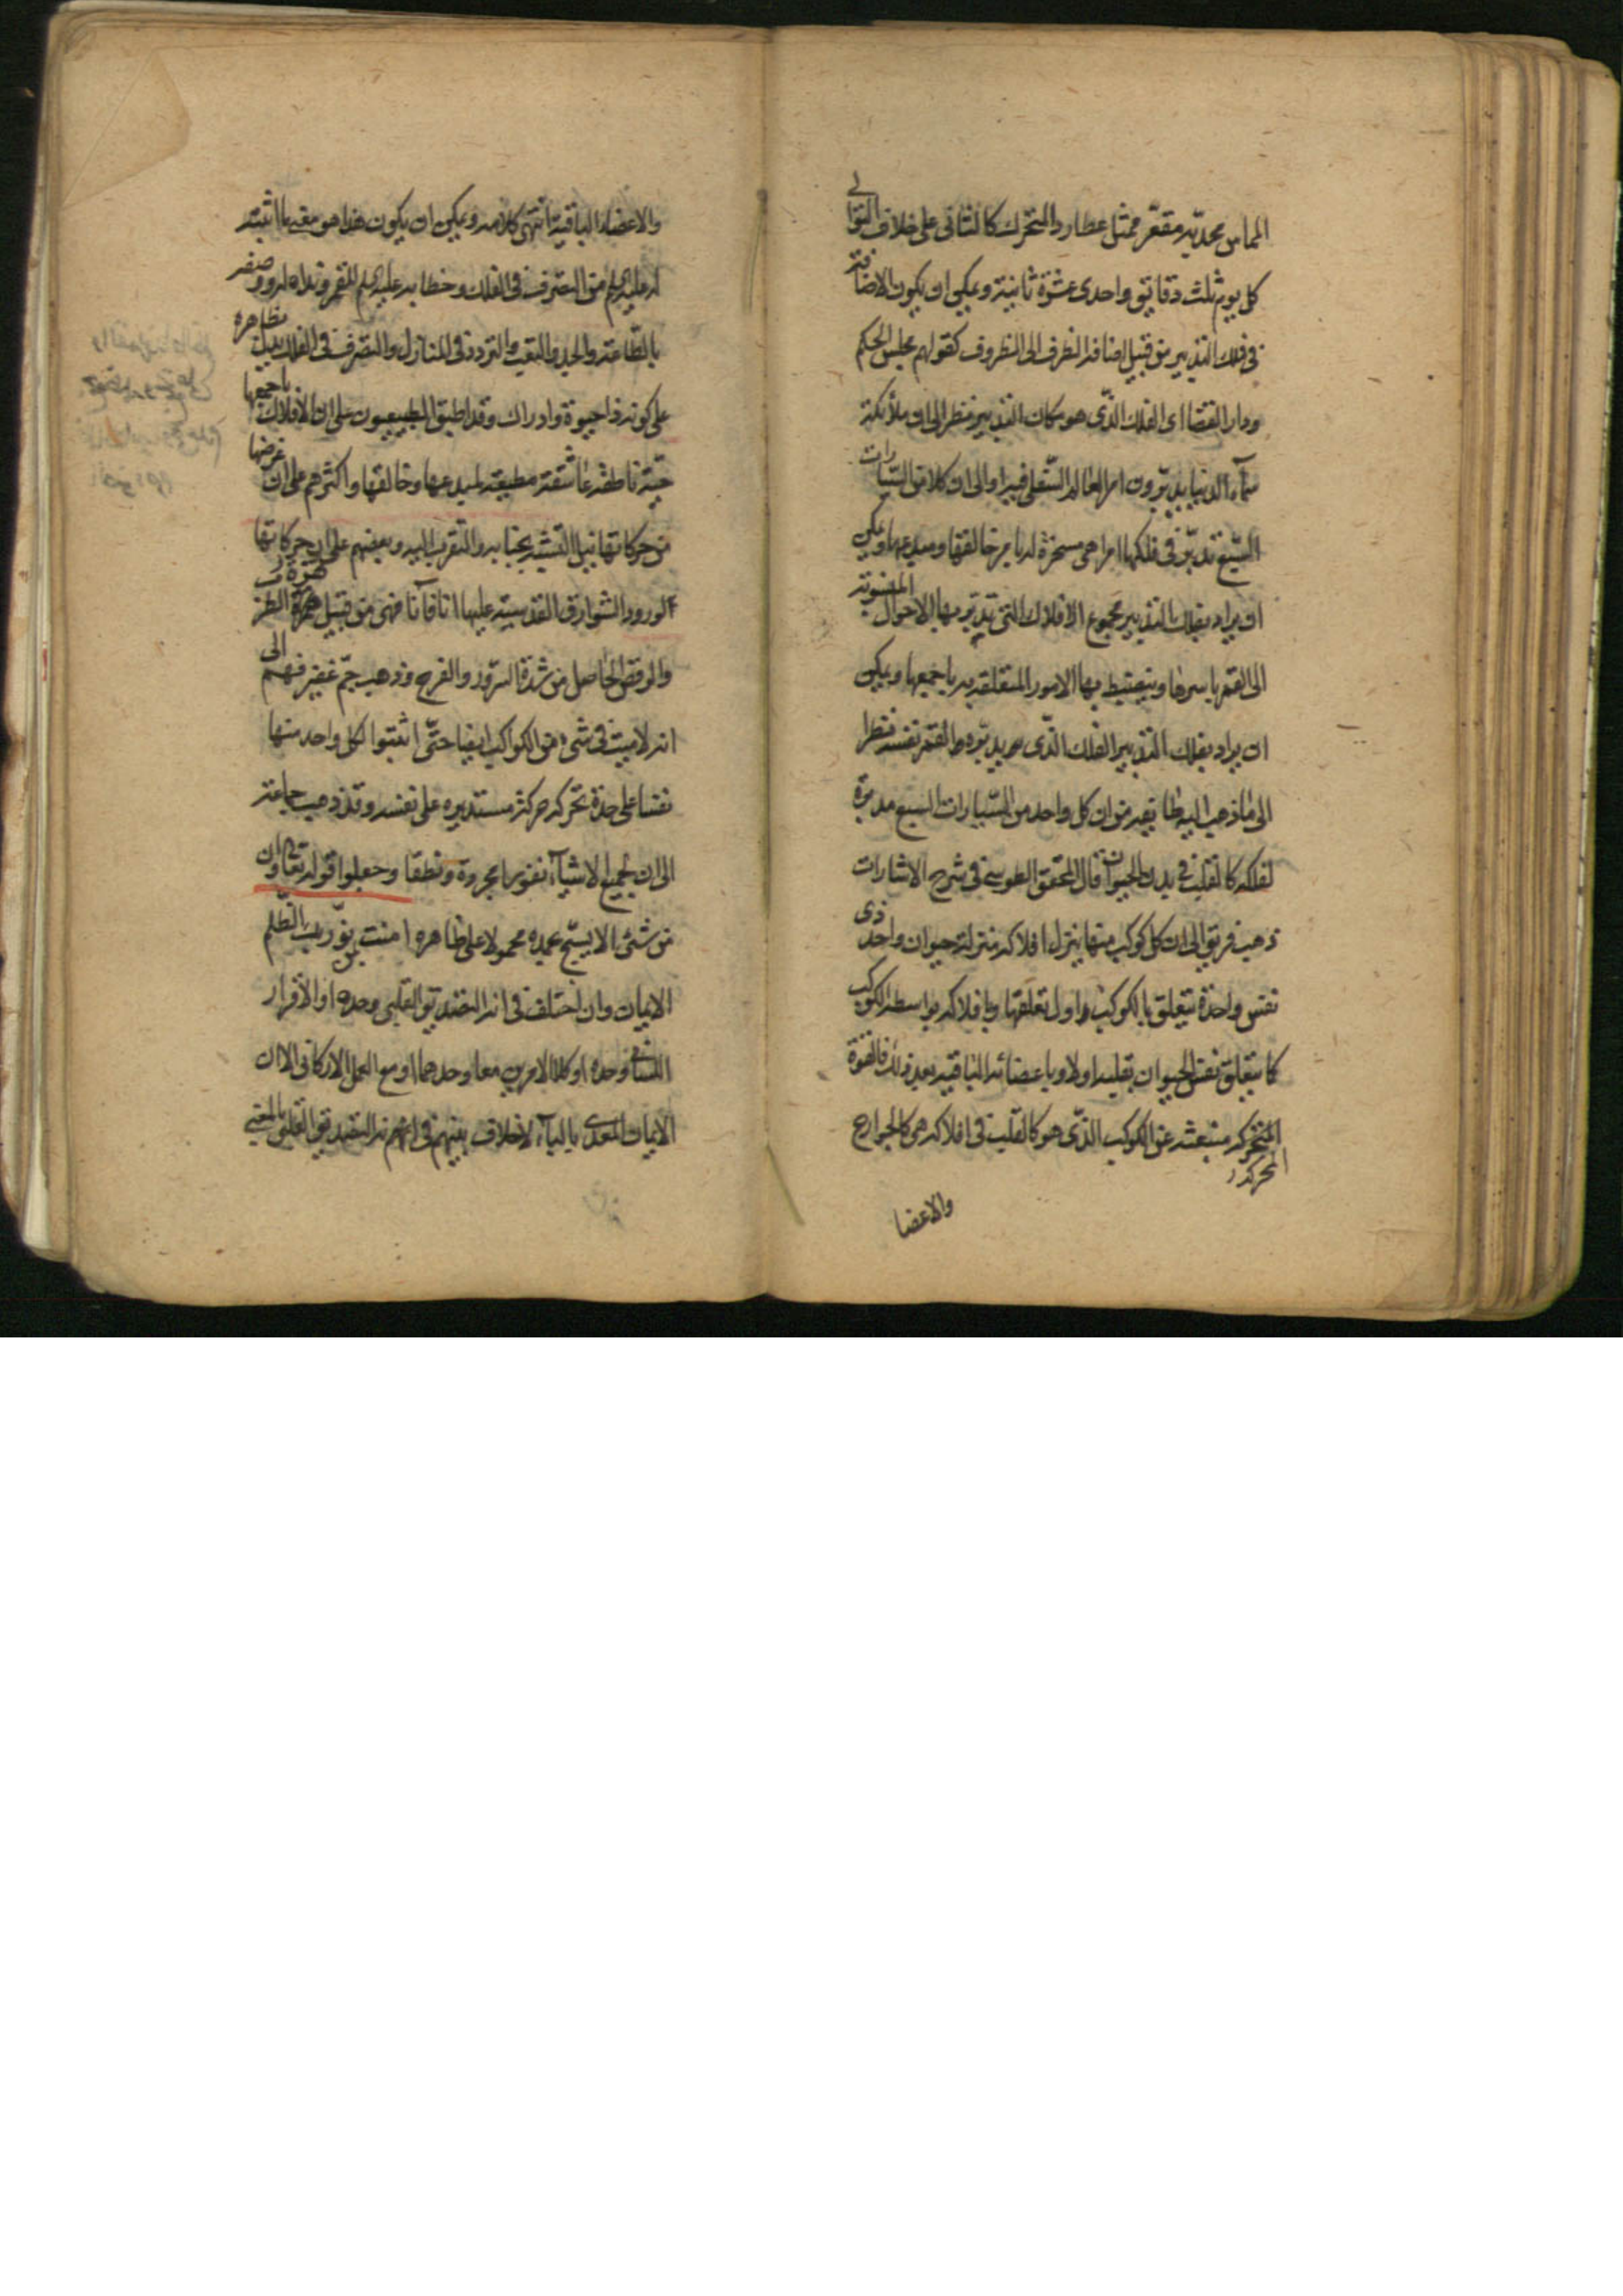 المماس بمحدبه مقعر ممثل عطارد المتحرك كالثانى على خلاف التوالى
كل يوم ثلث دقائق واحدى عشرة ثانية ويمكن ان يكون الاضافة
فى فلك التدبير من قبيل اضافة الظرف الى المظروف كقولهم مجلس الحكم
ودار القضا اى الفلك الذى هو مكان التدبير نظرا الى ان ملائكة
سمآء الدنيا يدبرون امر العالم السفلى فيه او الى ان كلا من السيارات
السبع تدبر فى فلكها امرا هى مسخرة له بامر خالقها ومبدعها ويمكن
ان يراد بفلك التدبير مجموع الافلاك التى تدبر بها الاحوال المنسوبة
الى القمر باسرها وينضبط بها الامور المتعلقة به باجمعها ويمكن
ان يراد بفلك التدبير الفلك الذى يدبره القمر نفسه نظرا
الى ما ذهب اليه طايفة من ان كل واحد من السيارات السبع مدبرة
لفلكه كالقلب فى بدن الحيوان قال المحقق الطوسى فى شرح الاشارات
ذهب فريق الى ان كل كوكب منها ينزل افلاكه منزلة حيوان واحد ذى
نفس واحدة يتعلق بالكوكب اول تعلقها وبافلاكه بواسطة الكوكب
كما يتعلق نفس الحيوان بقلبه اولا وباعضائه الباقية بعد ذلك فالقوة
المتحركة منبعثة عن الكوكب الذى هو كالقلب فى افلاكه هى كالجوارح
المحركة
والاعضا
والاعضاء الباقية انتهى كلامه ويمكن ان يكون هذا هو معنى ما اثبته
له عليه السلم من التصرف فى الفلك وخطابه عليه السلم للقمر وندائه له ووصفه
بالطاعة والجد والتعب والتردد فى المنازل والتصرف فى الفلك يدل بظاهره
على كونه ذا حيوة وادراك وقد اطبق الطبيعيون على ان الافلاك باجمعها
حية ناطقة عاشقة مطيعة لمبدعها وخالقها واكثرهم على ان غرضها
من حركاتها نيل التشبه بجنابه والتقرب اليه وبعضهم على ان حركاتها
لورود الشوارق القدسية عليها انا فانا فهى من قبيل هزة الطرب
والرقص الحاصل من شدة السرور والفرح وذهب جم غفير منهم الى
انه لا ميت فى شىء من الكواكب ايضا حتى اثبتوا لكل واحد منها
نفسا على حدة تحركه حركة مستديره على نفسه وقد ذهب جماعة
الى ان لجميع الاشيآء نفوسا مجردة ونطقا وجعلوا قوله تعالى وان
من شئ الا يسبح بحمده محمولا على ظاهره امنت بمن نور بك الظلم
الايمان وان اختلف فى انه التصديق القلبى وحده او الاقرار
اللسانى وحده او كلا الامرين معا وحدهما او مع العمل الاركانى الا ان
الايمان المعدى بالبآء لا خلاف بينهم فى انه التصديق القلبى بالمعنى